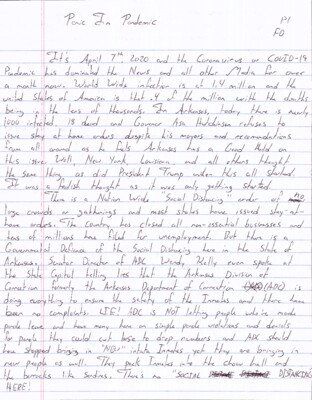 Panic In Pandemic P1
FD
It's April 7th 2020 and the Coronavirus or COVID-19
Pandemic has dominated the News and all other Media for over
a month now. World Wide infection is at 1.4 million and the
United States of America is that .4 of the million with the deaths
being in the tens of thousands. In Arkansas, today there is nearly
1000 infected, 18 dead and Governor Asa Hutchinson refuses to
issue stay at home orders despite his mayors and recommendations
from all around as he feels Arkansas has a Good Hold on
this issue. Well, New York, Louisiana, and all others thought
the same thing as did President Trump when this all started.
It was a foolish thought as it was only getting started.
There is a Nation Wide "Social Distancing" order of no
large crowds or gatherings and most states have issued stay-at-
home orders. The Country has closed all non-essential businesses and
tens of millions have filed for unemployment. But there is a
Governmental Defiance of the Social Distancing here in the State of
Arkansas. Senator Director of ADC Wendy Kelly even spoke at
the State Capitol telling lies that the Arkansas Division of
Correction formerly the Arkansas Department of Correction (ADC) is
doing everything to ensure the safety of the Inmates and there have
been no complaints. LIE! ADC is NOT letting people who've made
parole leave and have many here on simple parole violations and denials
for people they could cut loose to drop numbers and ADC should
have stopped bringing in "NEW" intake Inmates yet they are bringing in
new people as well. They pack Inmates into the chow hall and
the barracks like Sardines. There's no "SOCIAL DISTANCING"
HERE!